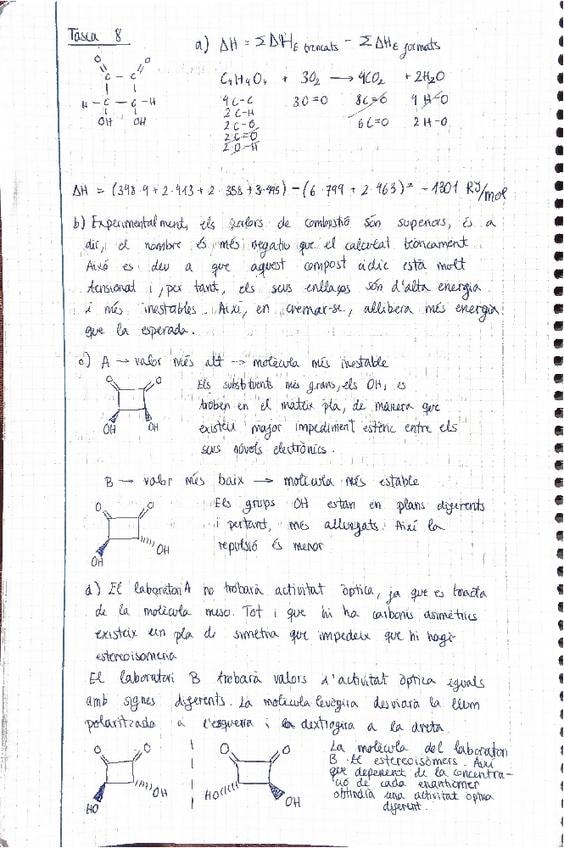 Tasca 8
a) ΔH = ΣΔH_E trencats - ΣΔH_E formats
O O
C - C
H - C - C - H
OH OH
C₄H₄O₄ + 3O₂ → 4CO₂ + 2H₂O
4C-C 3O=O 8C=O 4H-O
2C-H 6C=O 2H-O
2C-O
2C=O
2O-H
b) Experimentalment, els valors de combustió són superiors, és a
dir, el nombre és més negatiu que el calculat teòricament.
Això es deu a que aquest compost àcidic està molt
tensional i, per tant, els seus enllaços són d'alta energia
i més inestables. Així, en cremar-se, allibera més energia
que la esperada.
c) A → valor més alt → molècula més inestable
O O
OH OH
Els substituents més grans, els OH, es
troben en el mateix pla, de manera que
existeix major impediment estèric entre els
seus núvols electrònics.
B → valor més baix → molècula més estable
O O
OH OH
Els grups OH estan en plans diferents
i pertant, més allunyats. Així la
repulsió és menor
d) El laboratori A no trobarà activitat òptica, ja que es tracta
de la molècula meso. Tot i que hi ha carbonis asimètrics
existeix un pla de simetria que impedeix que hi hagi
estereoisomeria
El laboratori B trobarà valors d'activitat òptica iguals
amb signes diferents. La molècula levògira desviarà la llum
polaritzada a l'esquerra i la dextrògira a la dreta.
O O O O
HO OH HO OH
La molècula del laboratori
B té estereoisòmers. Així
que depenent de la concentra-
ció de cada enantiòmer
obtindria una activitat òptica
diferent.